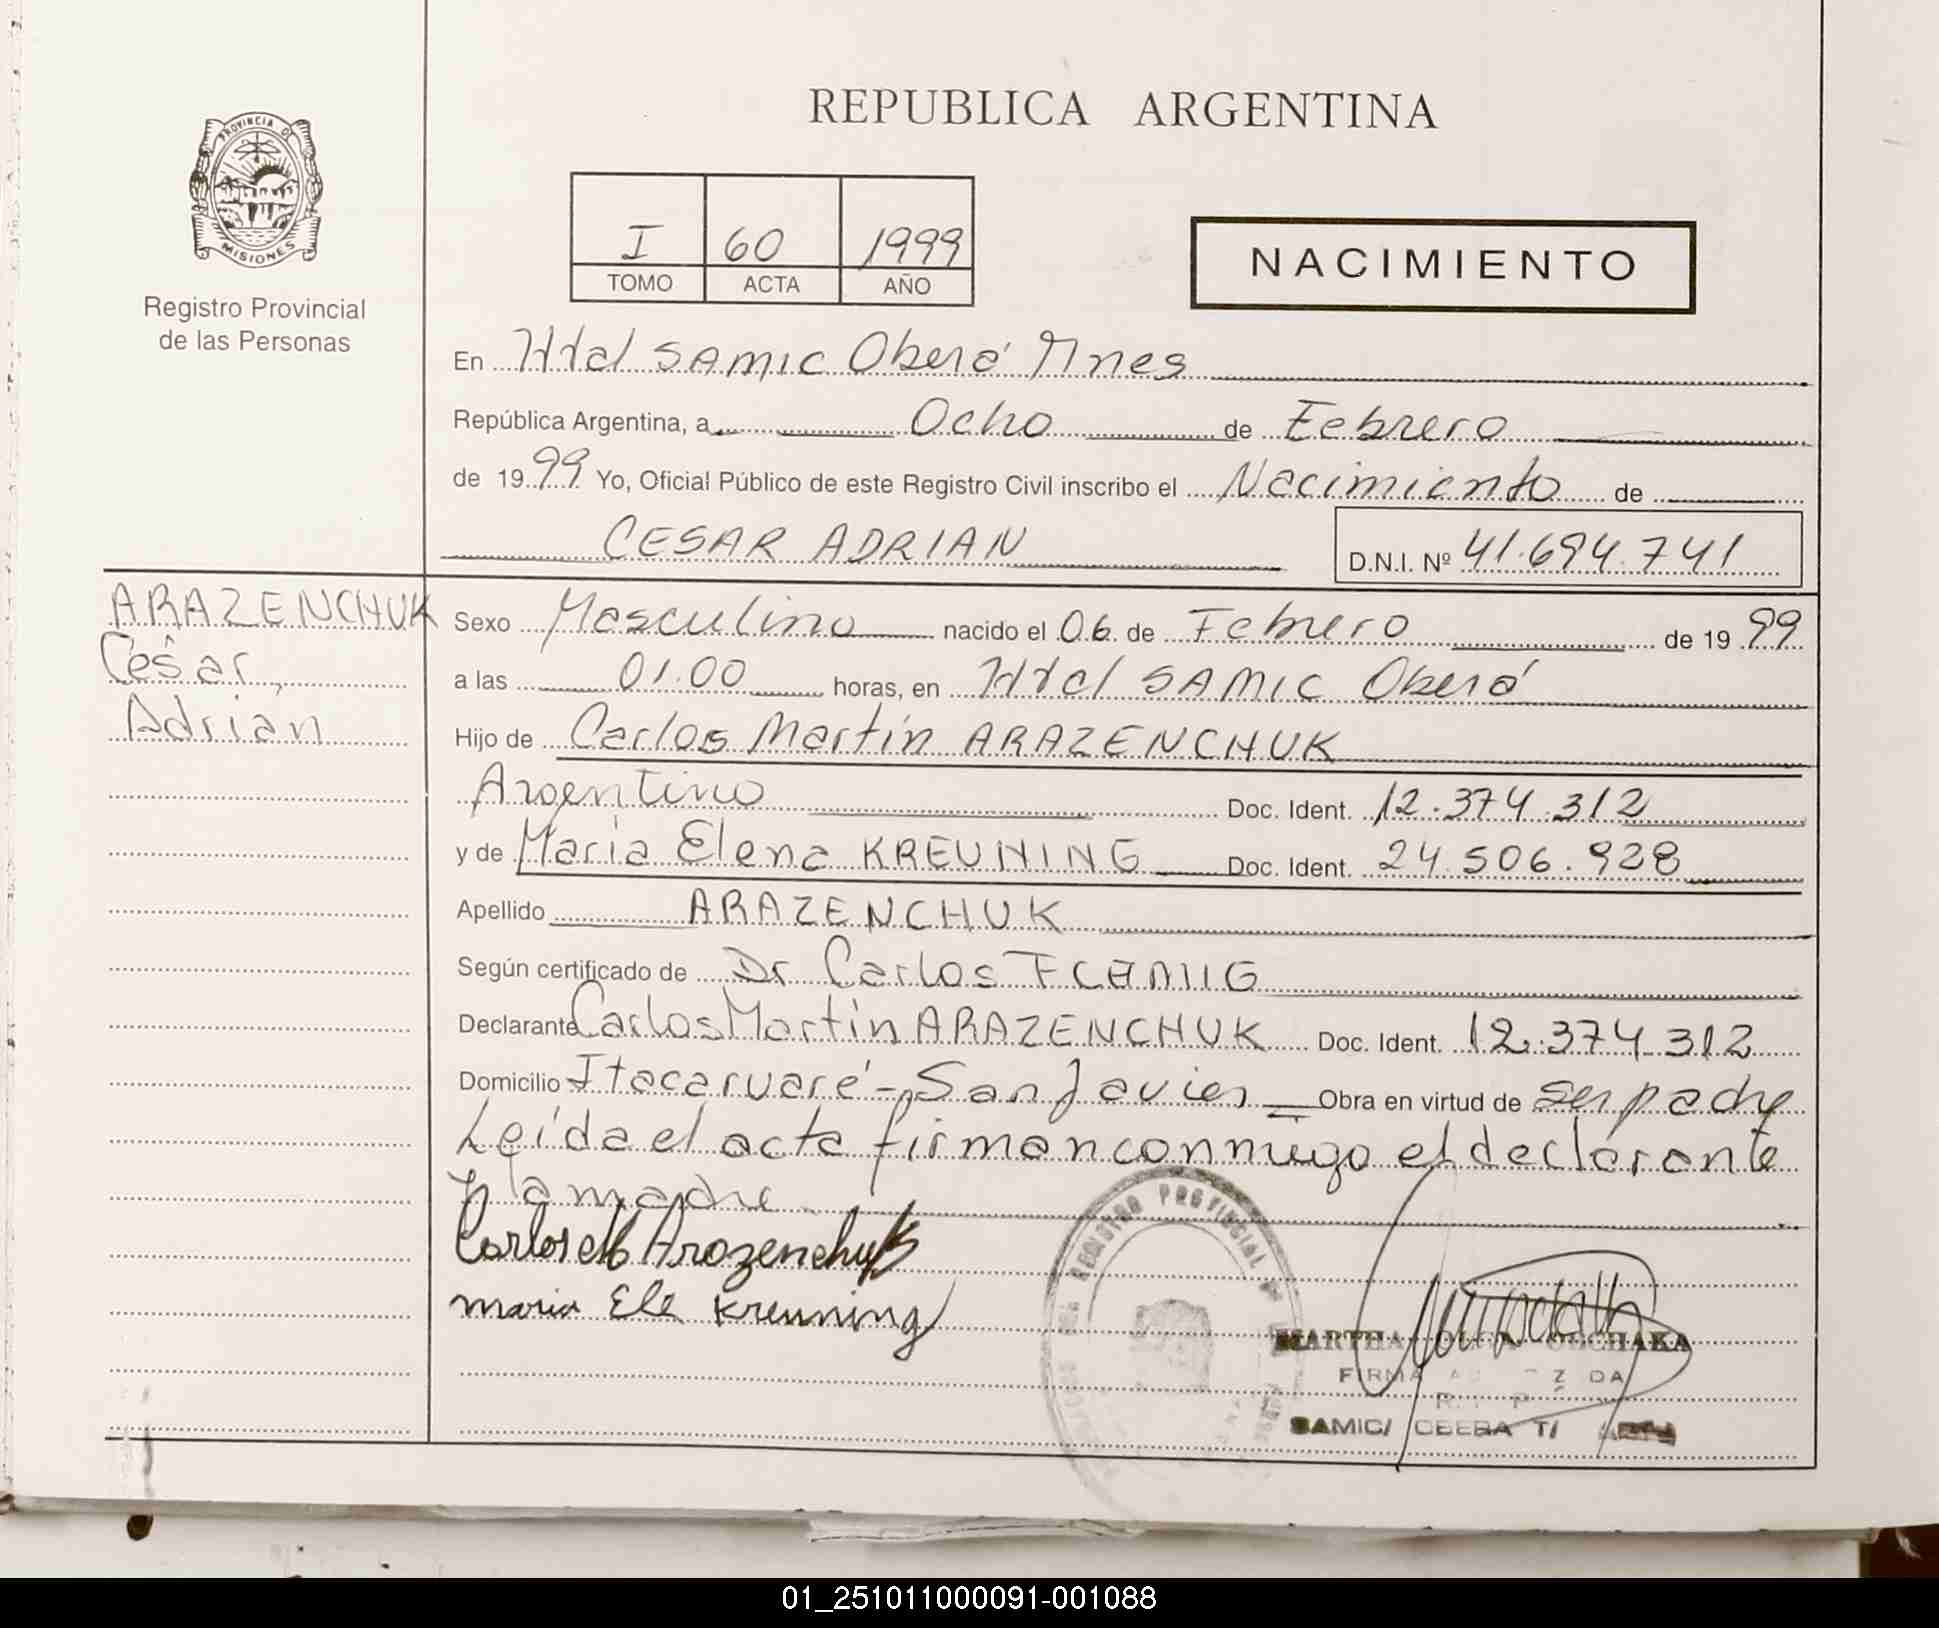 REPUBLICA ARGENTINA
PROVINCIA D
MISIONES
Registro Provincial
de las Personas
I 60 1999
TOMO ACTA AÑO
NACIMIENTO
En Htal SAMIC Oberá Mnes
República Argentina, a Ocho de Febrero
de 1999 Yo, Oficial Público de este Registro Civil inscribo el Nacimiento de
CESAR ADRIAN D.N.I. Nº 41.694.741
ARAZENCHUK
César,
Adrian
Sexo Masculino nacido el 06 de Febrero de 1999
a las 01.00 horas, en Htal SAMIC Oberá
Hijo de Carlos Martín ARAZENCHUK
Argentino Doc. Ident. 12.374.312
y de Maria Elena KREUNING Doc. Ident. 24.506.928
Apellido ARAZENCHUK
Según certificado de Dr Carlos
Declarante Carlos Martín ARAZENCHUK Doc. Ident. 12.374.312
Domicilio Itacaruaré - San Javier Obra en virtud de ser padre
Leída el acta firman conmigo el declarante
y la madre
Carlos M Arozenchuk
maria Ele Kreuning
REGISTRO PROVINCIAL
MARTHA
FIRMA
SAMIC/ OBERA
01_251011000091-001088